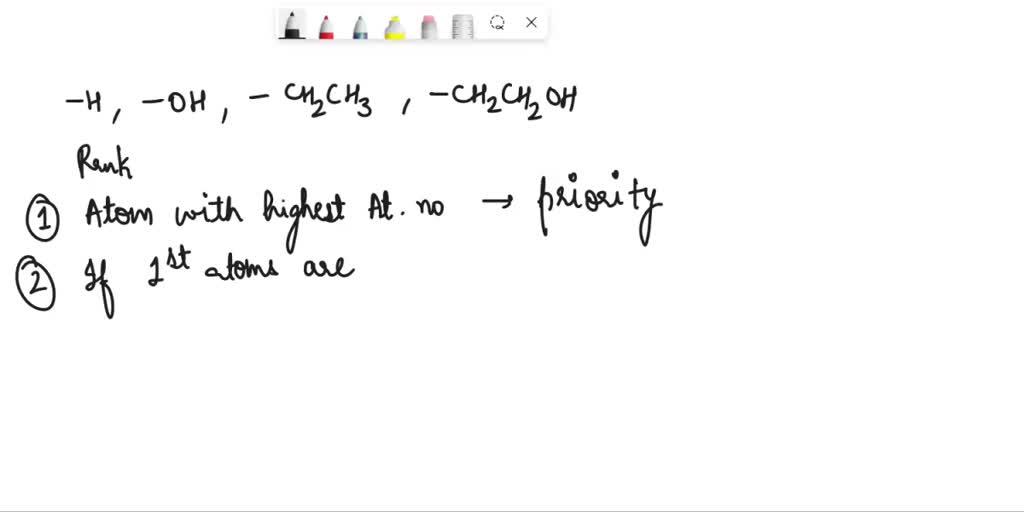 -H, -OH, -CH₂CH₃, -CH₂CH₂OH
Rank
① Atom with highest At. no → priority
② If 1st atoms are